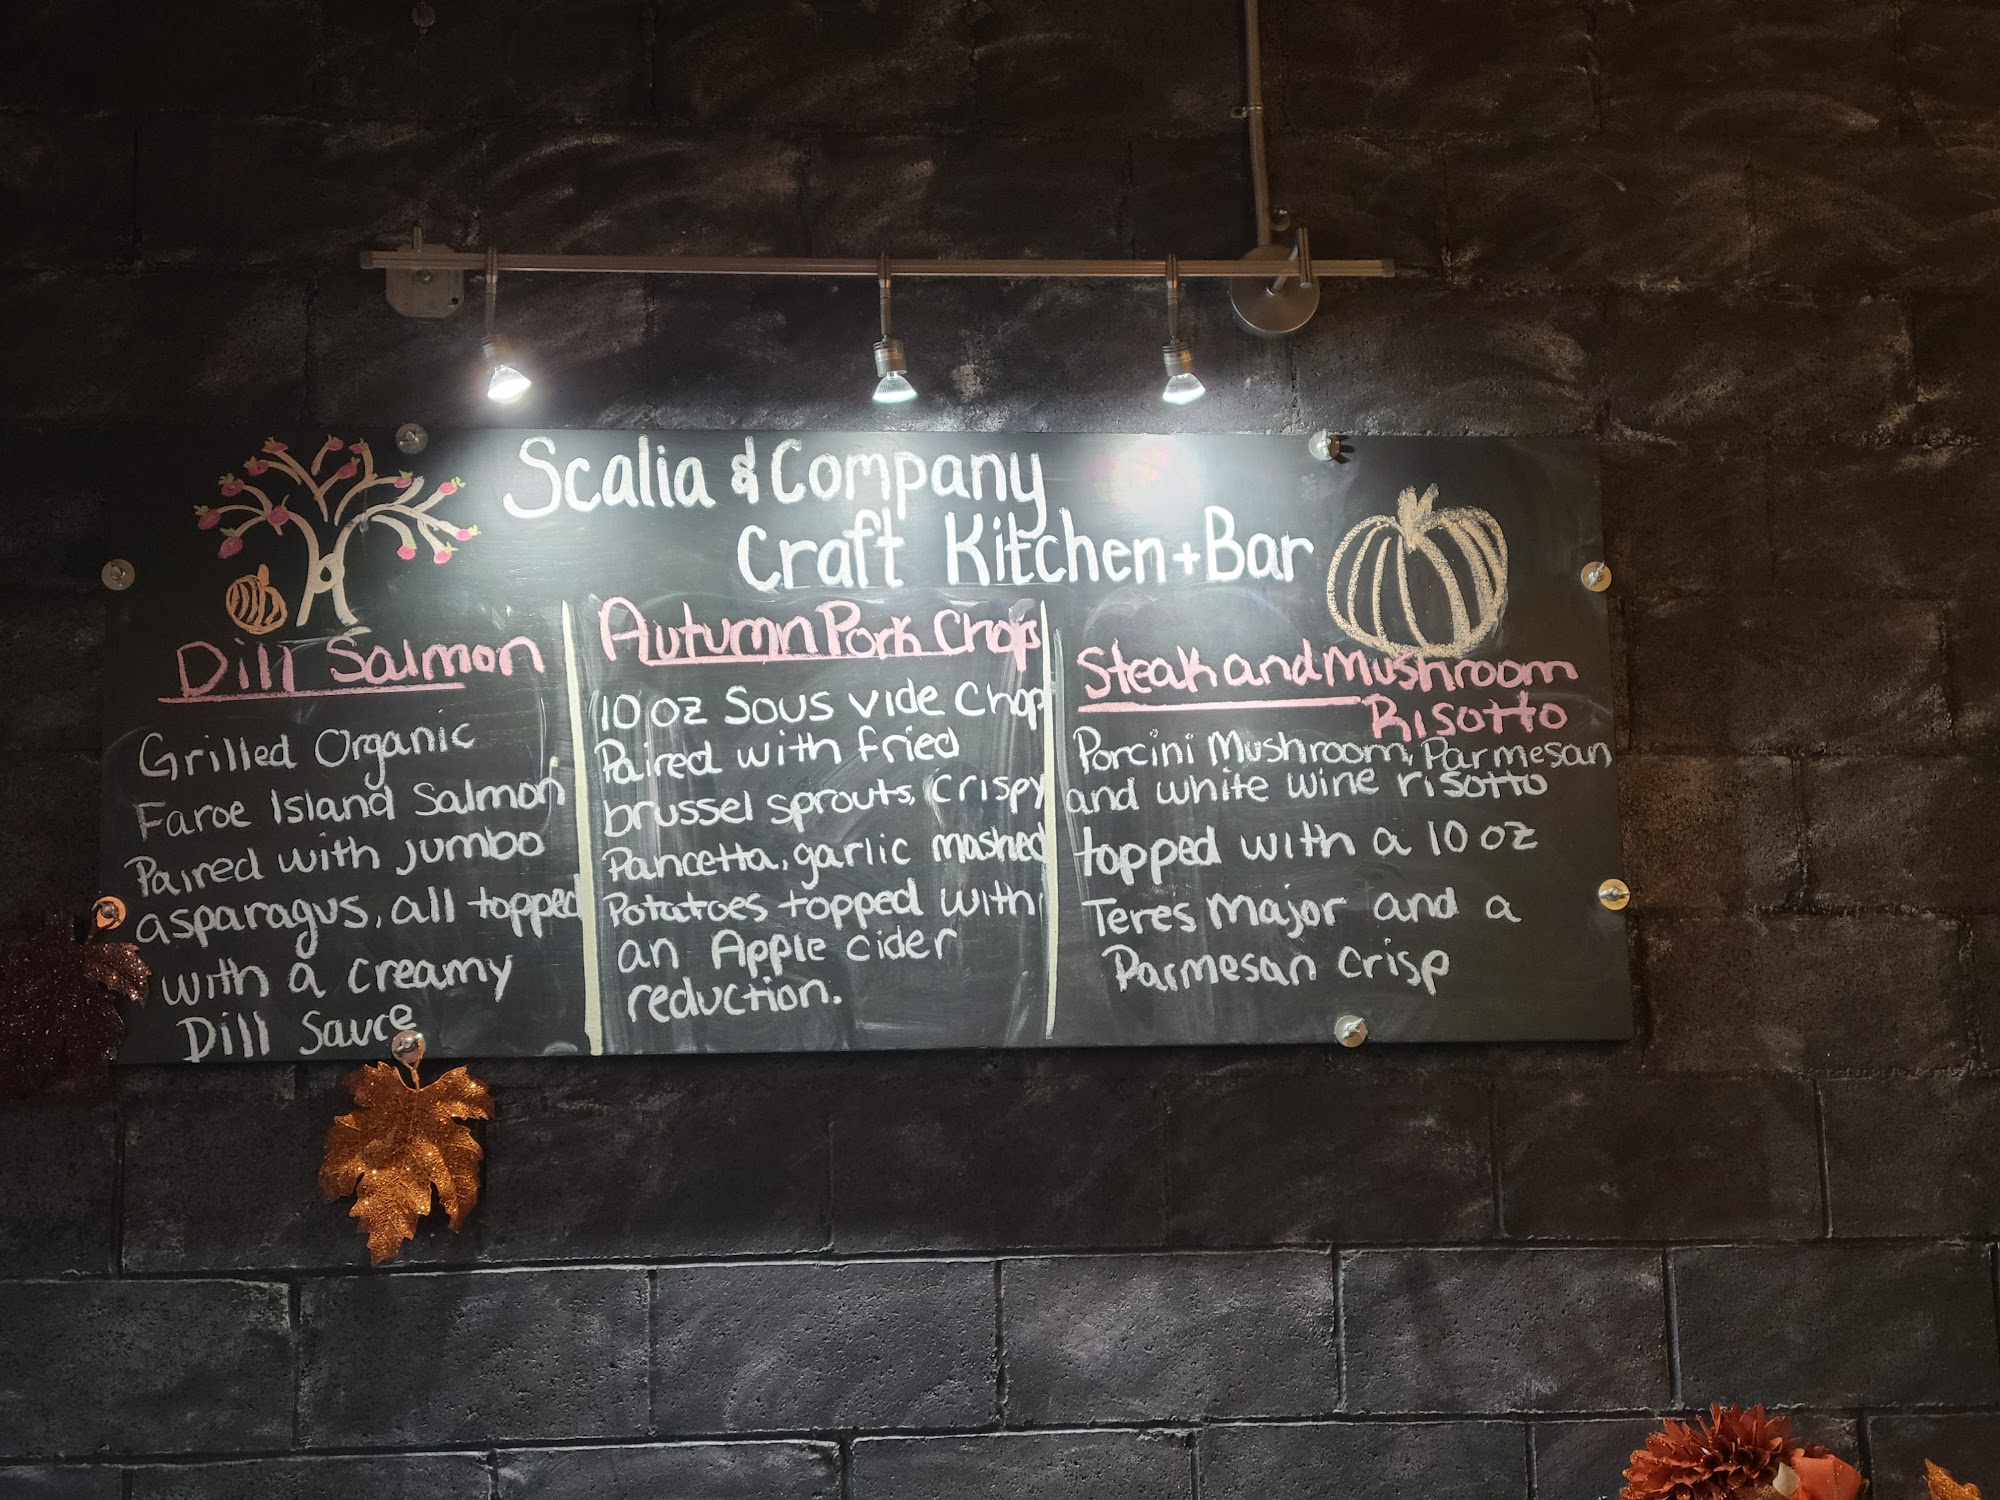 Scalia & Company
Craft Kitchen + Bar
Dill Salmon
Grilled Organic
Faroe Island Salmon
Paired with jumbo
asparagus, all topped
with a creamy
Dill Sauce
Autumn Pork Chop
10 oz Sous vide Chop
Paired with fried
brussel sprouts, crispy
Pancetta, garlic mashed
Potatoes topped with
an Apple cider
reduction.
Steak and Mushroom
Risotto
Porcini Mushroom, Parmesan
and white wine risotto
topped with a 10 oz
Teres Major and a
Parmesan crisp